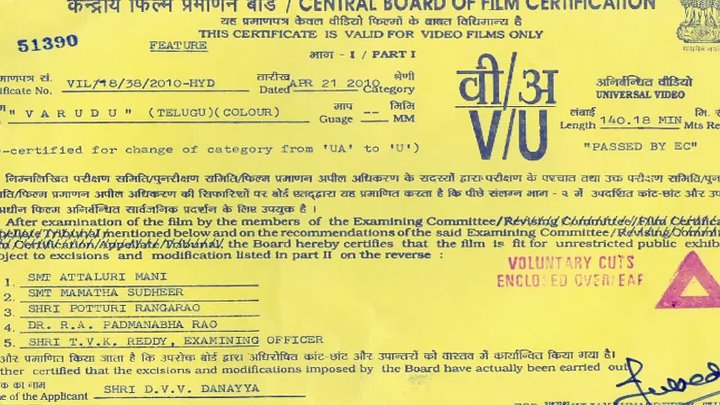 केन्द्रीय फिल्म प्रमाणन बोर्ड / CENTRAL BOARD OF FILM CERTIFICATION
यह प्रमाणपत्र केवल वीडियो फिल्मों के बाबत विधिमान्य है
51390 THIS CERTIFICATE IS VALID FOR VIDEO FILMS ONLY
FEATURE
भाग - I / PART I
माणपत्र सं. VIL/18/38/2010-HYD तारीख APR 21 2010 श्रेणी
ificate No. Dated Category
वी/अ
V/U
अनिर्बन्धित वीडियो
UNIVERSAL VIDEO
"VARUDU" (TELUGU)(COLOUR) माप -- मिमि
Guage MM
लंबाई मि.
Length 140.18 MIN Mts Re
-certified for change of category from 'UA' to 'U') "PASSED BY EC"
निम्नलिखित परीक्षण समिति/पुनरीक्षण समिति/फिल्म प्रमाणन अपील अधिकरण के सदस्यों द्वारा परीक्षण के पश्चात तथा उक्त परीक्षण समिति/पुनरी
मिति/फिल्म प्रमाणन अपील अधिकरण की सिफारिशों पर बोर्ड एतद्द्वारा यह प्रमाणित करता है कि पीछे संलग्न भाग - २ में उपदर्शित कांट-छांट और उपा
अधीन फिल्म अनिर्बन्धित सार्वजनिक प्रदर्शन के लिए उपयुक्त है ।
After examination of the film by the members of the Examining Committee/Revising Committee/Film Certific
Appellate Tribunal mentioned below and on the recommendations of the said Examining Committee/Revising Commit
m Certification Appellate Tribunal, the Board hereby certifies that the film is fit for unrestricted public exhib
bject to excisions and modification listed in part II on the reverse :
VOLUNTARY CUTS
ENCLOSED OVERLEAF
1. SMT ATTALURI MANI
2. SMT MAMATHA SUDHEER
3. SHRI POTTURI RANGARAO
4. DR. R.A. PADMANABHA RAO
5. SHRI T.V.K. REDDY, EXAMINING OFFICER
और प्रमाणित किया जाता है कि उपरोक्त बोर्ड द्वारा अधिरोपित कांट-छांट और उपान्तरों को वास्तव में कार्यान्वित किया गया है।
ther certified that the excisions and modifications imposed by the Board have actually been carried out
क का नाम
e of the Applicant SHRI D.V.V. DANAYYA